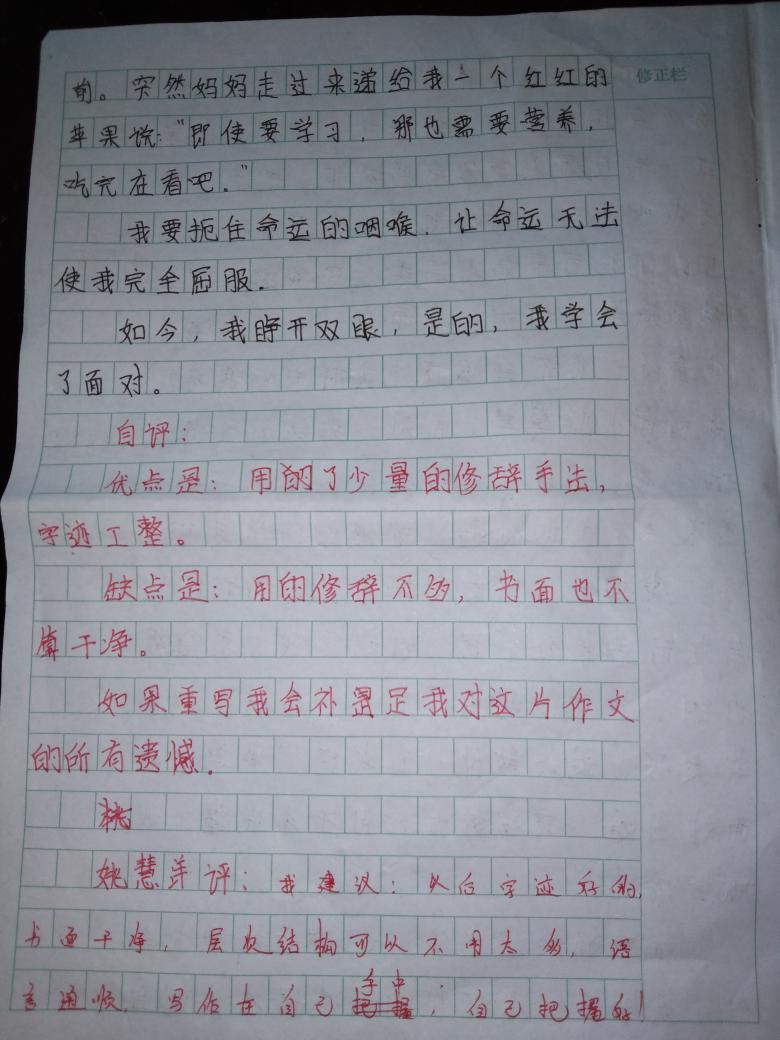 的。突然妈妈走过来递给我一个红红的
苹果说:"即使要学习,那也需要营养,
吃完在看吧。"
我要扼住命运的咽喉.让命运无法
使我完全屈服.
如今,我睁开双眼,是的,我学会
了面对。
自评:
优点是:用的了少量的修辞手法,
字迹工整。
缺点是:用的修辞不多,书面也不
算干净。
如果重写我会补足我对这片作文
的所有遗憾.
姚慧洋评:我建议:以后字迹好的,
书面干净,层次结构可以不用太多,语
言通顺,写作在自己手中,自己把握好!
修正栏